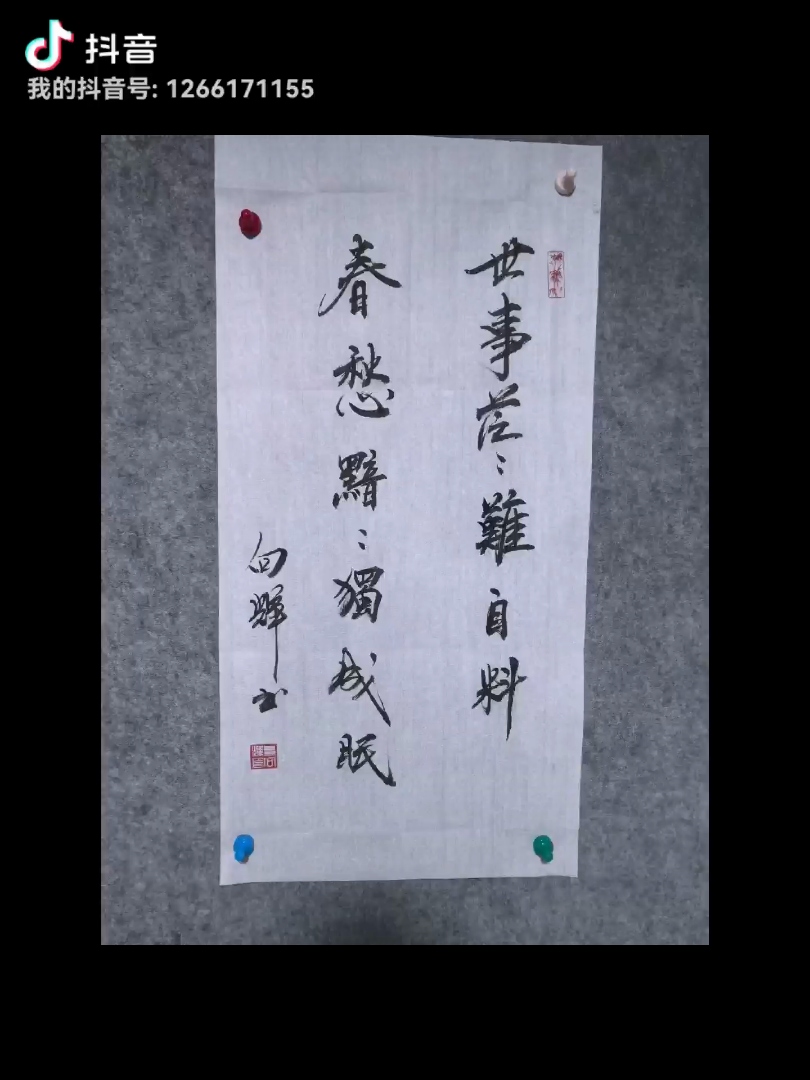 抖音
我的抖音号: 1266171155
世事茫〻難自料
春愁黯〻獨成眠
向輝书